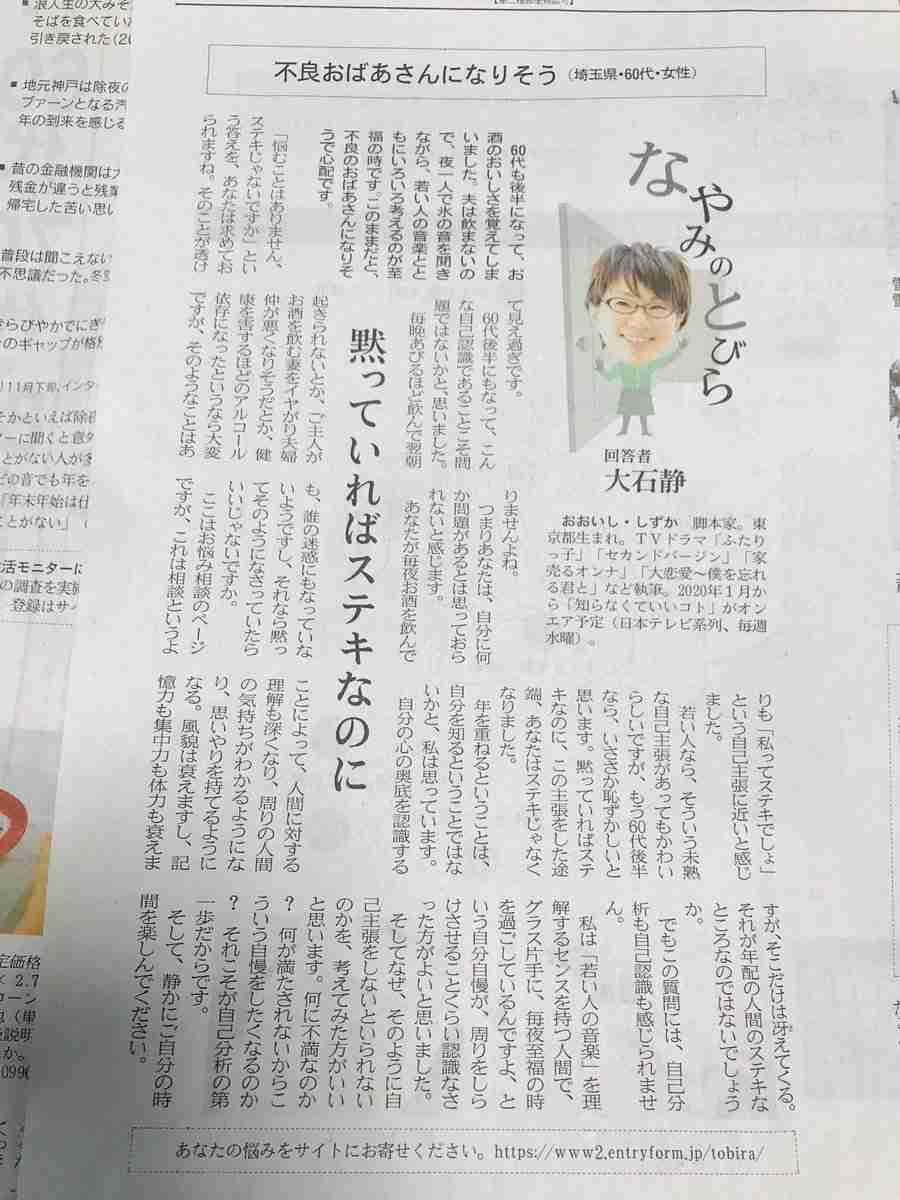 不良おばあさんになりそう（埼玉県・60代・女性）
なやみのとびら
回答者
大石静
おおいし・しずか　脚本家。東
京都生まれ。ＴＶドラマ「ふたり
っ子」「セカンドバージン」「家
売るオンナ」「大恋愛〜僕を忘れ
る君と」など執筆。2020年１月か
ら「知らなくていいコト」がオン
エア予定（日本テレビ系列、毎週
水曜）。
60代も後半になって、お
酒のおいしさを覚えてしま
いました。夫は飲まないの
で、夜一人で氷の音を聞き
ながら、若い人の音楽とと
もにいろいろ考えるのが至
福の時です。このままだと、
不良のおばあさんになりそ
うで心配です。
「悩むことはありません、
ステキじゃないですか」とい
う答えを、あなたは求めてお
られますね。そのことが透け
て見え過ぎです。
60代後半にもなって、こん
な自己認識であることこそ問
題ではないかと、思いました。
毎晩あびるほど飲んで翌朝
黙っていればステキなのに
起きられないとか、ご主人が
お酒を飲む妻をイヤがり夫婦
仲が悪くなりそうだとか、健
康を害するほどのアルコール
依存になったというなら大変
ですが、そのようなことはあ
りませんよね。
つまりあなたは、自分に何
か問題があるとは思っておら
れないと感じます。
あなたが毎夜お酒を飲んで
も、誰の迷惑にもなっていな
いようですし、それなら黙っ
てそのようになさっていたら
いいじゃないですか。
ここはお悩み相談のページ
ですが、これは相談というよ
りも「私ってステキでしょ」
という自己主張に近いと感じ
ました。
若い人なら、そういう未熟
な自己主張があってもかわい
らしいですが、もう60代後半
なら、いささか恥ずかしいと
思います。黙っていればステ
キなのに、この主張をした途
端、あなたはステキじゃなく
なりました。
年を重ねるということは、
自分を知るということではな
いかと、私は思っています。
自分の心の奥底を認識する
ことによって、人間に対する
理解も深くなり、周りの人間
の気持ちがわかるようにな
り、思いやりを持てるように
なる。風貌は衰えますし、記
憶力も集中力も体力も衰えま
すが、そこだけは冴えてくる。
それが年配の人間のステキな
ところなのではないでしょう
か。
でもこの質問には、自己分
析も自己認識も感じられませ
ん。
私は「若い人の音楽」を理
解するセンスを持つ人間で、
グラス片手に、毎夜至福の時
を過ごしているんですよ、と
いう自分自慢が、周りをしら
けさせることくらい認識なさ
った方がよいと思いました。
そしてなぜ、そのように自
己主張をしないといられない
のかを、考えてみた方がいい
と思います。何に不満なのか
？　何が満たされないからこ
ういう自慢をしたくなるのか
？　それこそが自己分析の第
一歩だからです。
そして、静かにご自分の時
間を楽しんでください。
あなたの悩みをサイトにお寄せください。https://www2.entryform.jp/tobira/
浪人生の大みそ
そばを食べていた
引き戻された（20
■ 地元神戸は除夜の
ブァーンとなる汽
年の到来を感じる
■ 昔の金融機関は大
残金が違うと残業
帰宅した苦い思い
普段は聞こえない
不思議だった。
らびやかでにぎ
のギャップが格
11月下旬、インター
そかといえば除夜
ターに聞くと意外
とがない人が多
どの音でも年を
「年末年始は仕
ことがない」
活モニターに
の調査を実施
登録はサイ
定価格